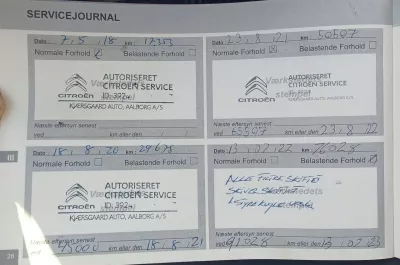 SERVICEJOURNAL
Dato: 7, 5, 18 km: 17353
Normale Forhold Belastende Forhold
AUTORISERET
CITROËN SERVICE
CITROËN
KJÆRSGAARD AUTO, AALBORG A/S
Næste eftersyn senest
ved km eller den
Dato: 23, 8, 21 km: 50507
Normale Forhold Belastende Forhold
AUTORISERET
CITROËN SERVICE
CITROËN
KJÆRSGAARD AUTO, AALBORG A/S
Næste eftersyn senest
ved 65507 km eller den 23, 8, 22
III
Dato: 18, 8, 20 km: 29678
Normale Forhold Belastende Forhold
AUTORISERET
CITROËN SERVICE
CITROËN
KJÆRSGAARD AUTO, AALBORG A/S
Næste eftersyn senest
ved km eller den 18, 8, 21
Dato: 13, 02, 22 km: 76028
Normale Forhold Belastende Forhold
ALLE FILTRE SKIFTET
Næste eftersyn senest
ved 91028 km eller den 13, 02, 23